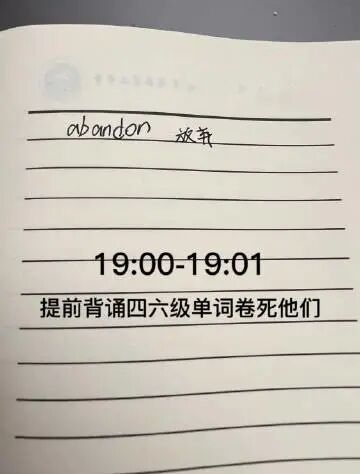 abandon 放弃
19:00-19:01
提前背诵四六级单词卷死他们